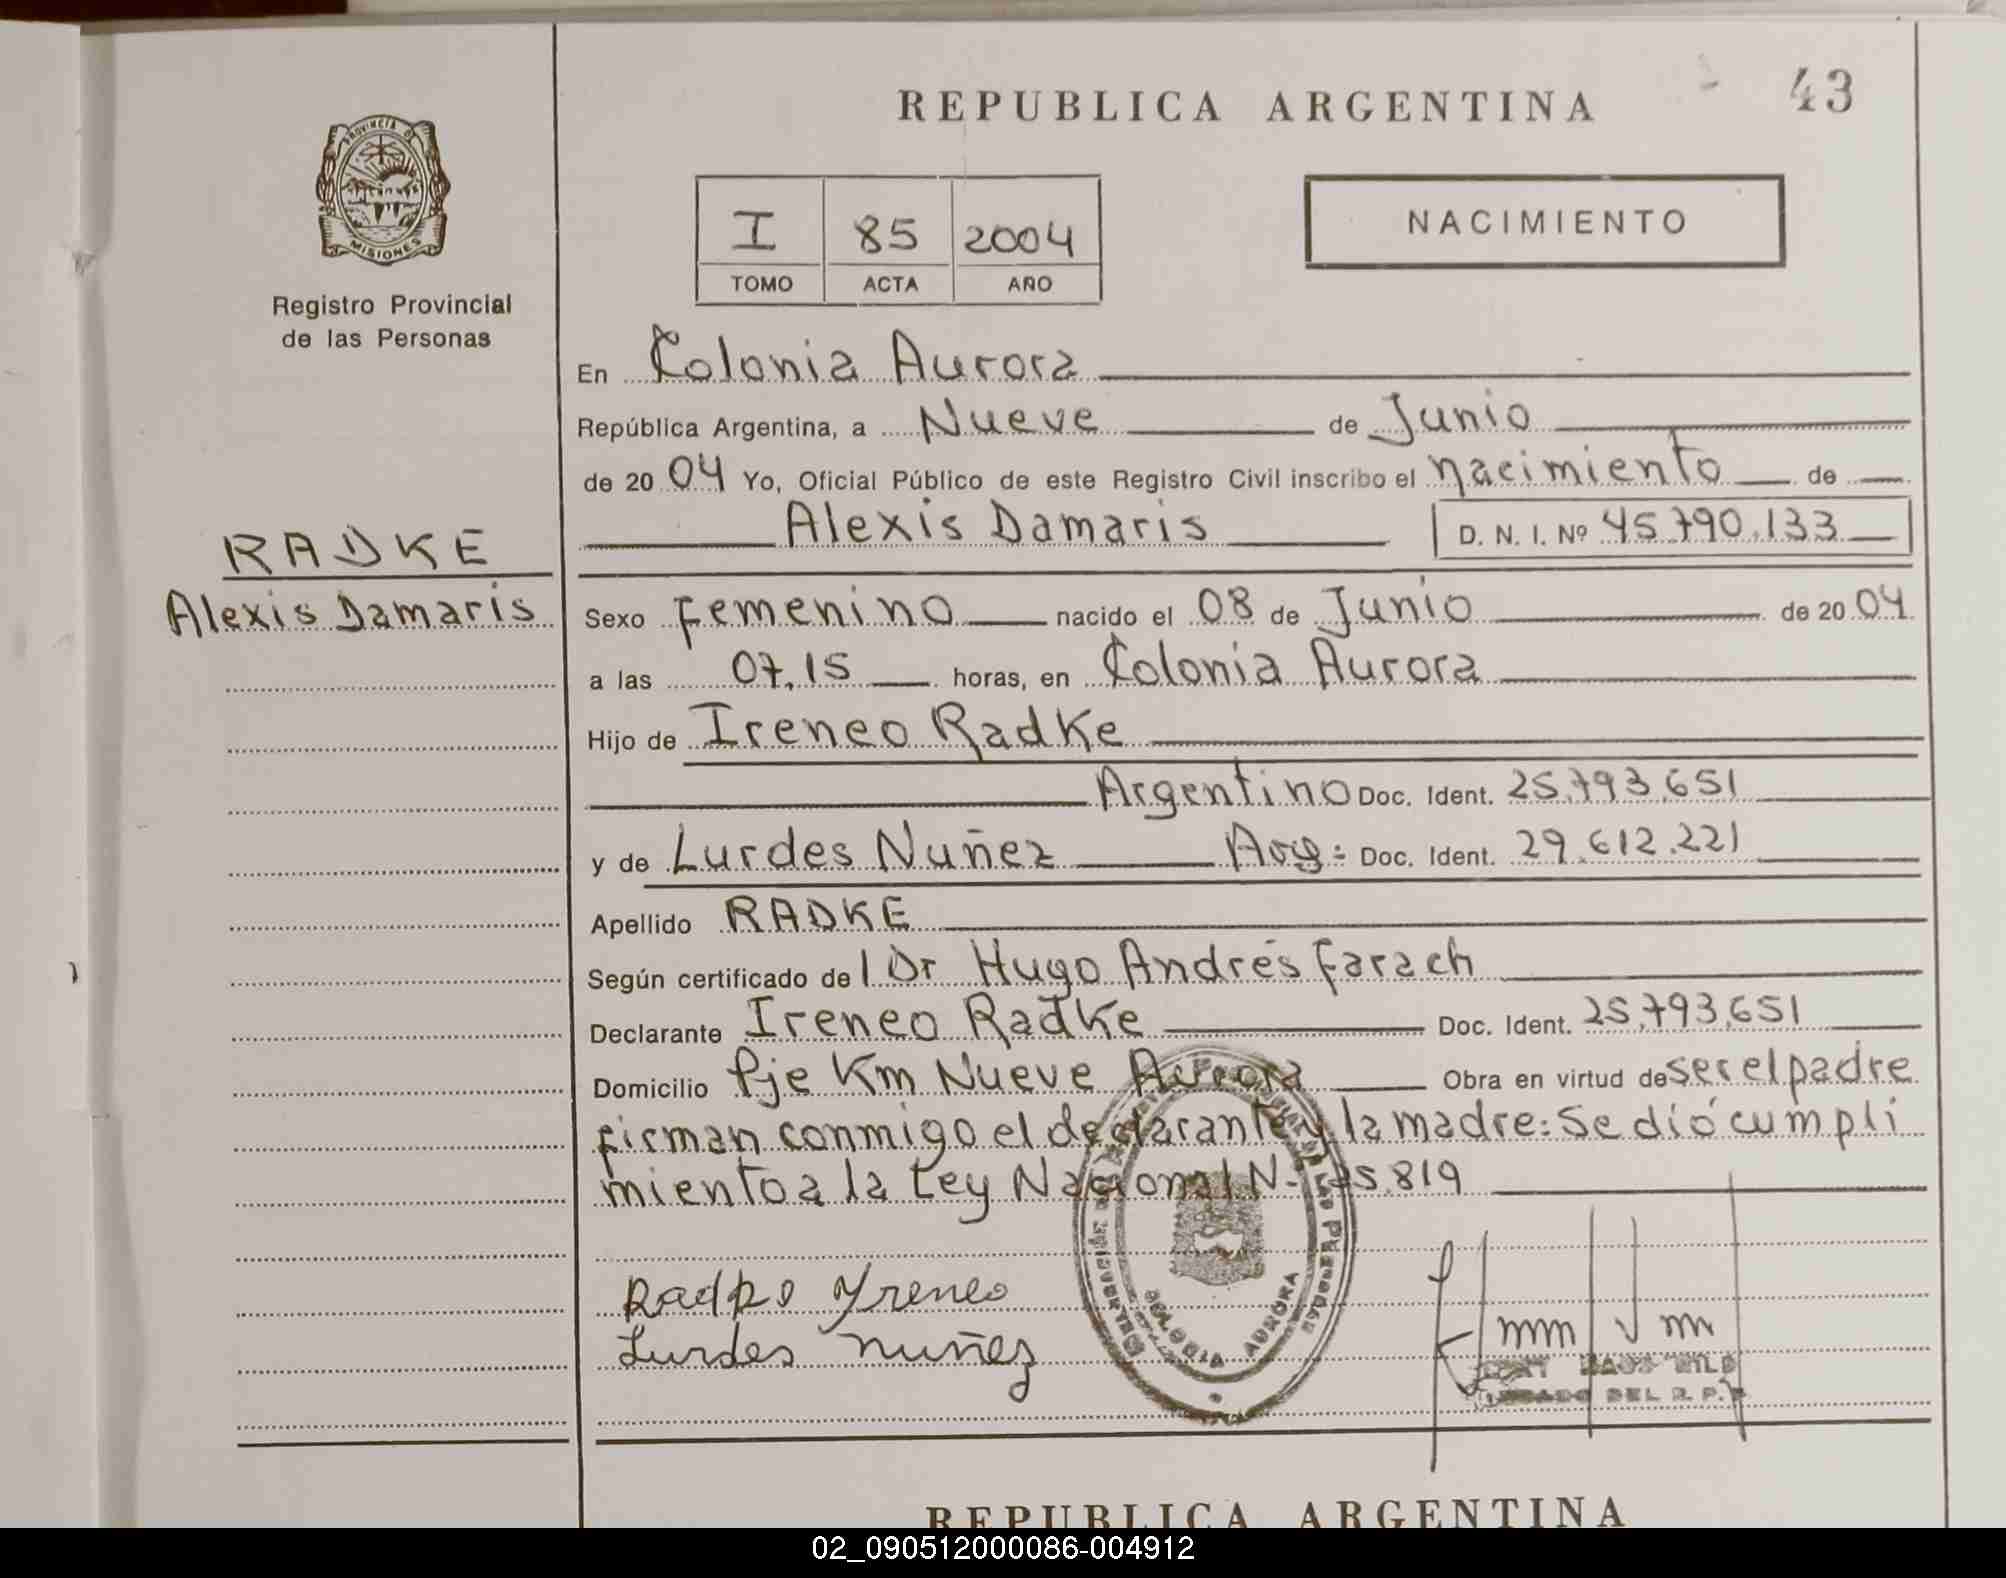 REPUBLICA ARGENTINA
43
PROVINCIA DE
MISIONES
Registro Provincial
de las Personas
I 85 2004
TOMO ACTA AÑO
NACIMIENTO
En Colonia Aurora
República Argentina, a Nueve de Junio
de 2004 Yo, Oficial Público de este Registro Civil inscribo el nacimiento de
Alexis Damaris D. N. I. Nº 45.790.133
RADKE
Alexis Damaris
Sexo Femenino nacido el 08 de Junio de 2004
a las 07.15 horas, en Colonia Aurora
Hijo de Ireneo Radke
Argentino Doc. Ident. 25.793.651
y de Lurdes Nuñez Arg: Doc. Ident. 29.612.221
Apellido RADKE
Según certificado del Dr Hugo Andrés Farach
Declarante Ireneo Radke Doc. Ident. 25.793.651
Domicilio Pje Km Nueve Aurora Obra en virtud de ser el padre
firman conmigo el declarante y la madre: Se dió cumpli
miento a la Ley Nacional N- 25.819
Yreneo
Lurdes nuñez
AURORA
DEL R. P.
REPUBLICA ARGENTINA
02_090512000086-004912